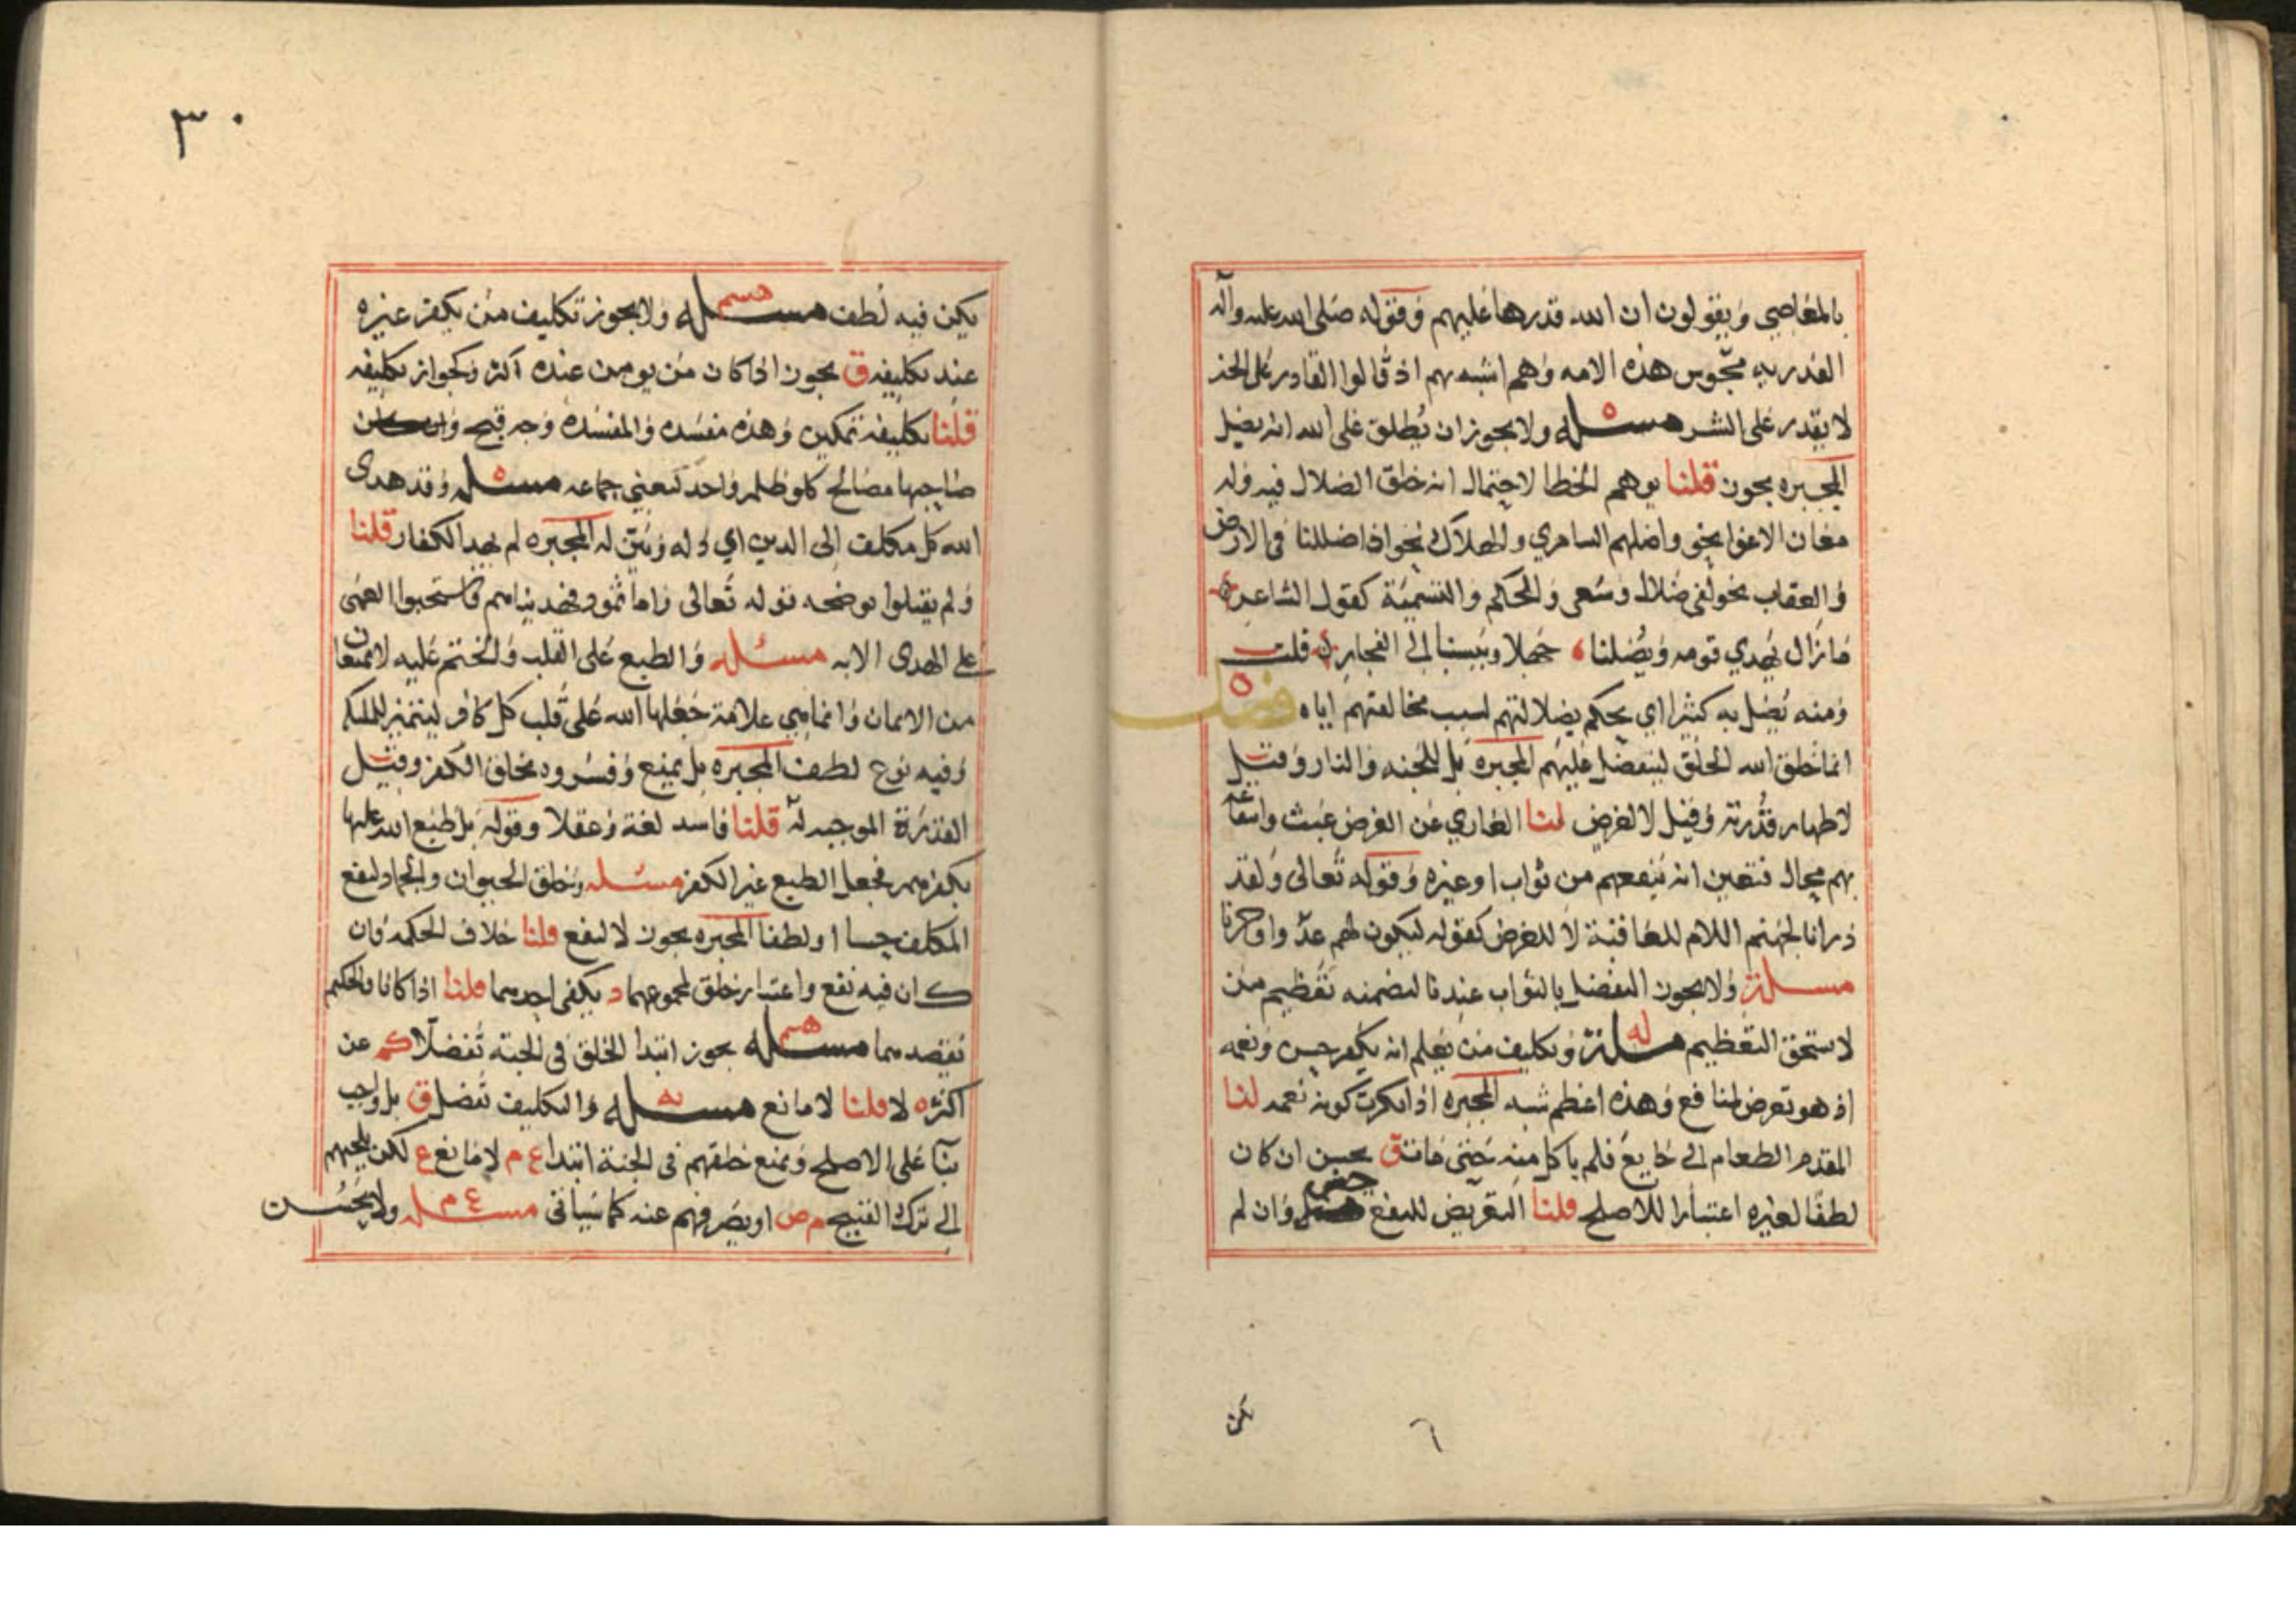 بالمعاصي ويقولون ان الله قدرها عليهم وقوله صلى الله عليه وآله
القدريه مجوس هذه الامه وهم اشبه بهم اذ قالوا القادر على الخير
لا يقدر على الشر مسئله ولا يجوز ان يطلق على الله انه يضل
المجبره يجوز قلنا يوهم الخطا لاحتمال انه خلق الضلال فيه وله
معان الاغوا نحو واضلهم السامري والهلاك نحو اذا ضللنا في الارض
والعقاب نحو لفي ضلال وسعر والحكم والتسمية كقول الشاعر
ما زال يهدي قومه ويضلنا جهلا وينسبنا الى الفجار قلت
ومنه يضل به كثيرا اي يحكم بضلالتهم لسبب مخالفتهم اياه فصل
انما خلق الله الخلق ليتفضل عليهم المجبره بل للجنه والنار وقيل
لاظهار قدرته وقيل لا لغرض لنا العاري عن الغرض عبث وانتفاعه
بهم محال فتعين انه لينفعهم من ثواب او غيره وقوله تعالى ولقد
ذرانا لجهنم اللام للعاقبة لا للغرض كقوله ليكون لهم عدوا وحزنا
مسئلة ولا يجوز التفضل بالثواب عندنا لتضمنه تعظيم من
لا يستحق التعظيم مسئلة وتكليف من يعلم انه يكفر حسن ونعمه
اذ هو تعرض لمنافع وهذه اعظم شبه المجبره اذ انكرت كونه نعمه لنا
المقدم الطعام الى جايع فلم ياكل منه حتى مات ق يحسن ان كان
لطفا لغيره اعتبارا للاصلح قلنا التعريض للنفع حسن وان لم
كن
٦
٣٠
يكن فيه لطف مسئله ولا يجوز تكليف من يكفر غيره
عند تكليفه ق يجوز اذا كان من يومن عنده اكثر وكجواز تكليفه
قلنا تكليفه تمكين وهذه مفسده والمفسده وجه قبح وان كان
صاحبها مصالح كلو ظلم واحد لتغني جماعه مسئله وقد هدى
الله كل مكلف الى الدين اي دله وبين له المجبره لم يهد الكفار قلنا
ولم يقبلوا يوضحه قوله تعالى واما ثمود فهديناهم فاستحبوا العمى
على الهدى الايه مسئله والطبع على القلب والختم عليه لا يمنعان
من الايمان وانما هي علامة جعلها الله على قلب كل كافر ليتميز للملئكه
وفيه نوع لطف المجبره بل يمنع وفسروه بخلق الكفر وقيل
القدرة الموجبه له قلنا فاسد لغة وعقلا وقوله بل طبع الله عليها
بكفرهم فجعل الطبع غير الكفر مسئله وخلق الحيوان والجماد لنفع
المكلف حسا او لطفا المجبره يجوز لا لنفع قلنا خلاف الحكمه وان
كان فيه نفع واعتبار خلق لمجموعهما د يكفي احدهما قلنا اذا كانا فالحكيم
يقصدهما مسئله يجوز ابتدا الخلق في الجنة تفضلا كم عن
اكثره لا قلنا لا مانع مسئله والتكليف تفضل ق بل واجب
بنا على الاصلح ويمنع خلقهم في الجنة ابتدا ع م لا مانع ع لكن يلجيهم
الى ترك القبيح م ص او يصرفهم عنه كما سياتي مسئله ولا يحسن